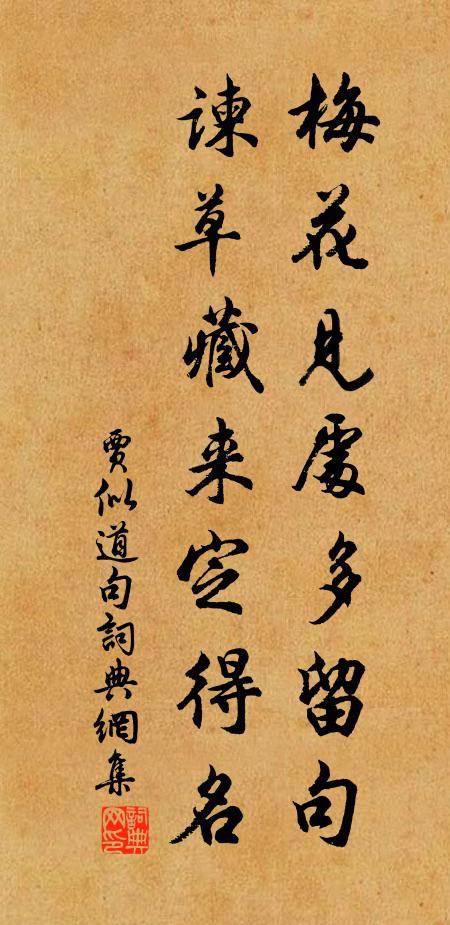 梅花見處多留句
諫草藏来定得名
賈似道句詞典網集
詞典网印